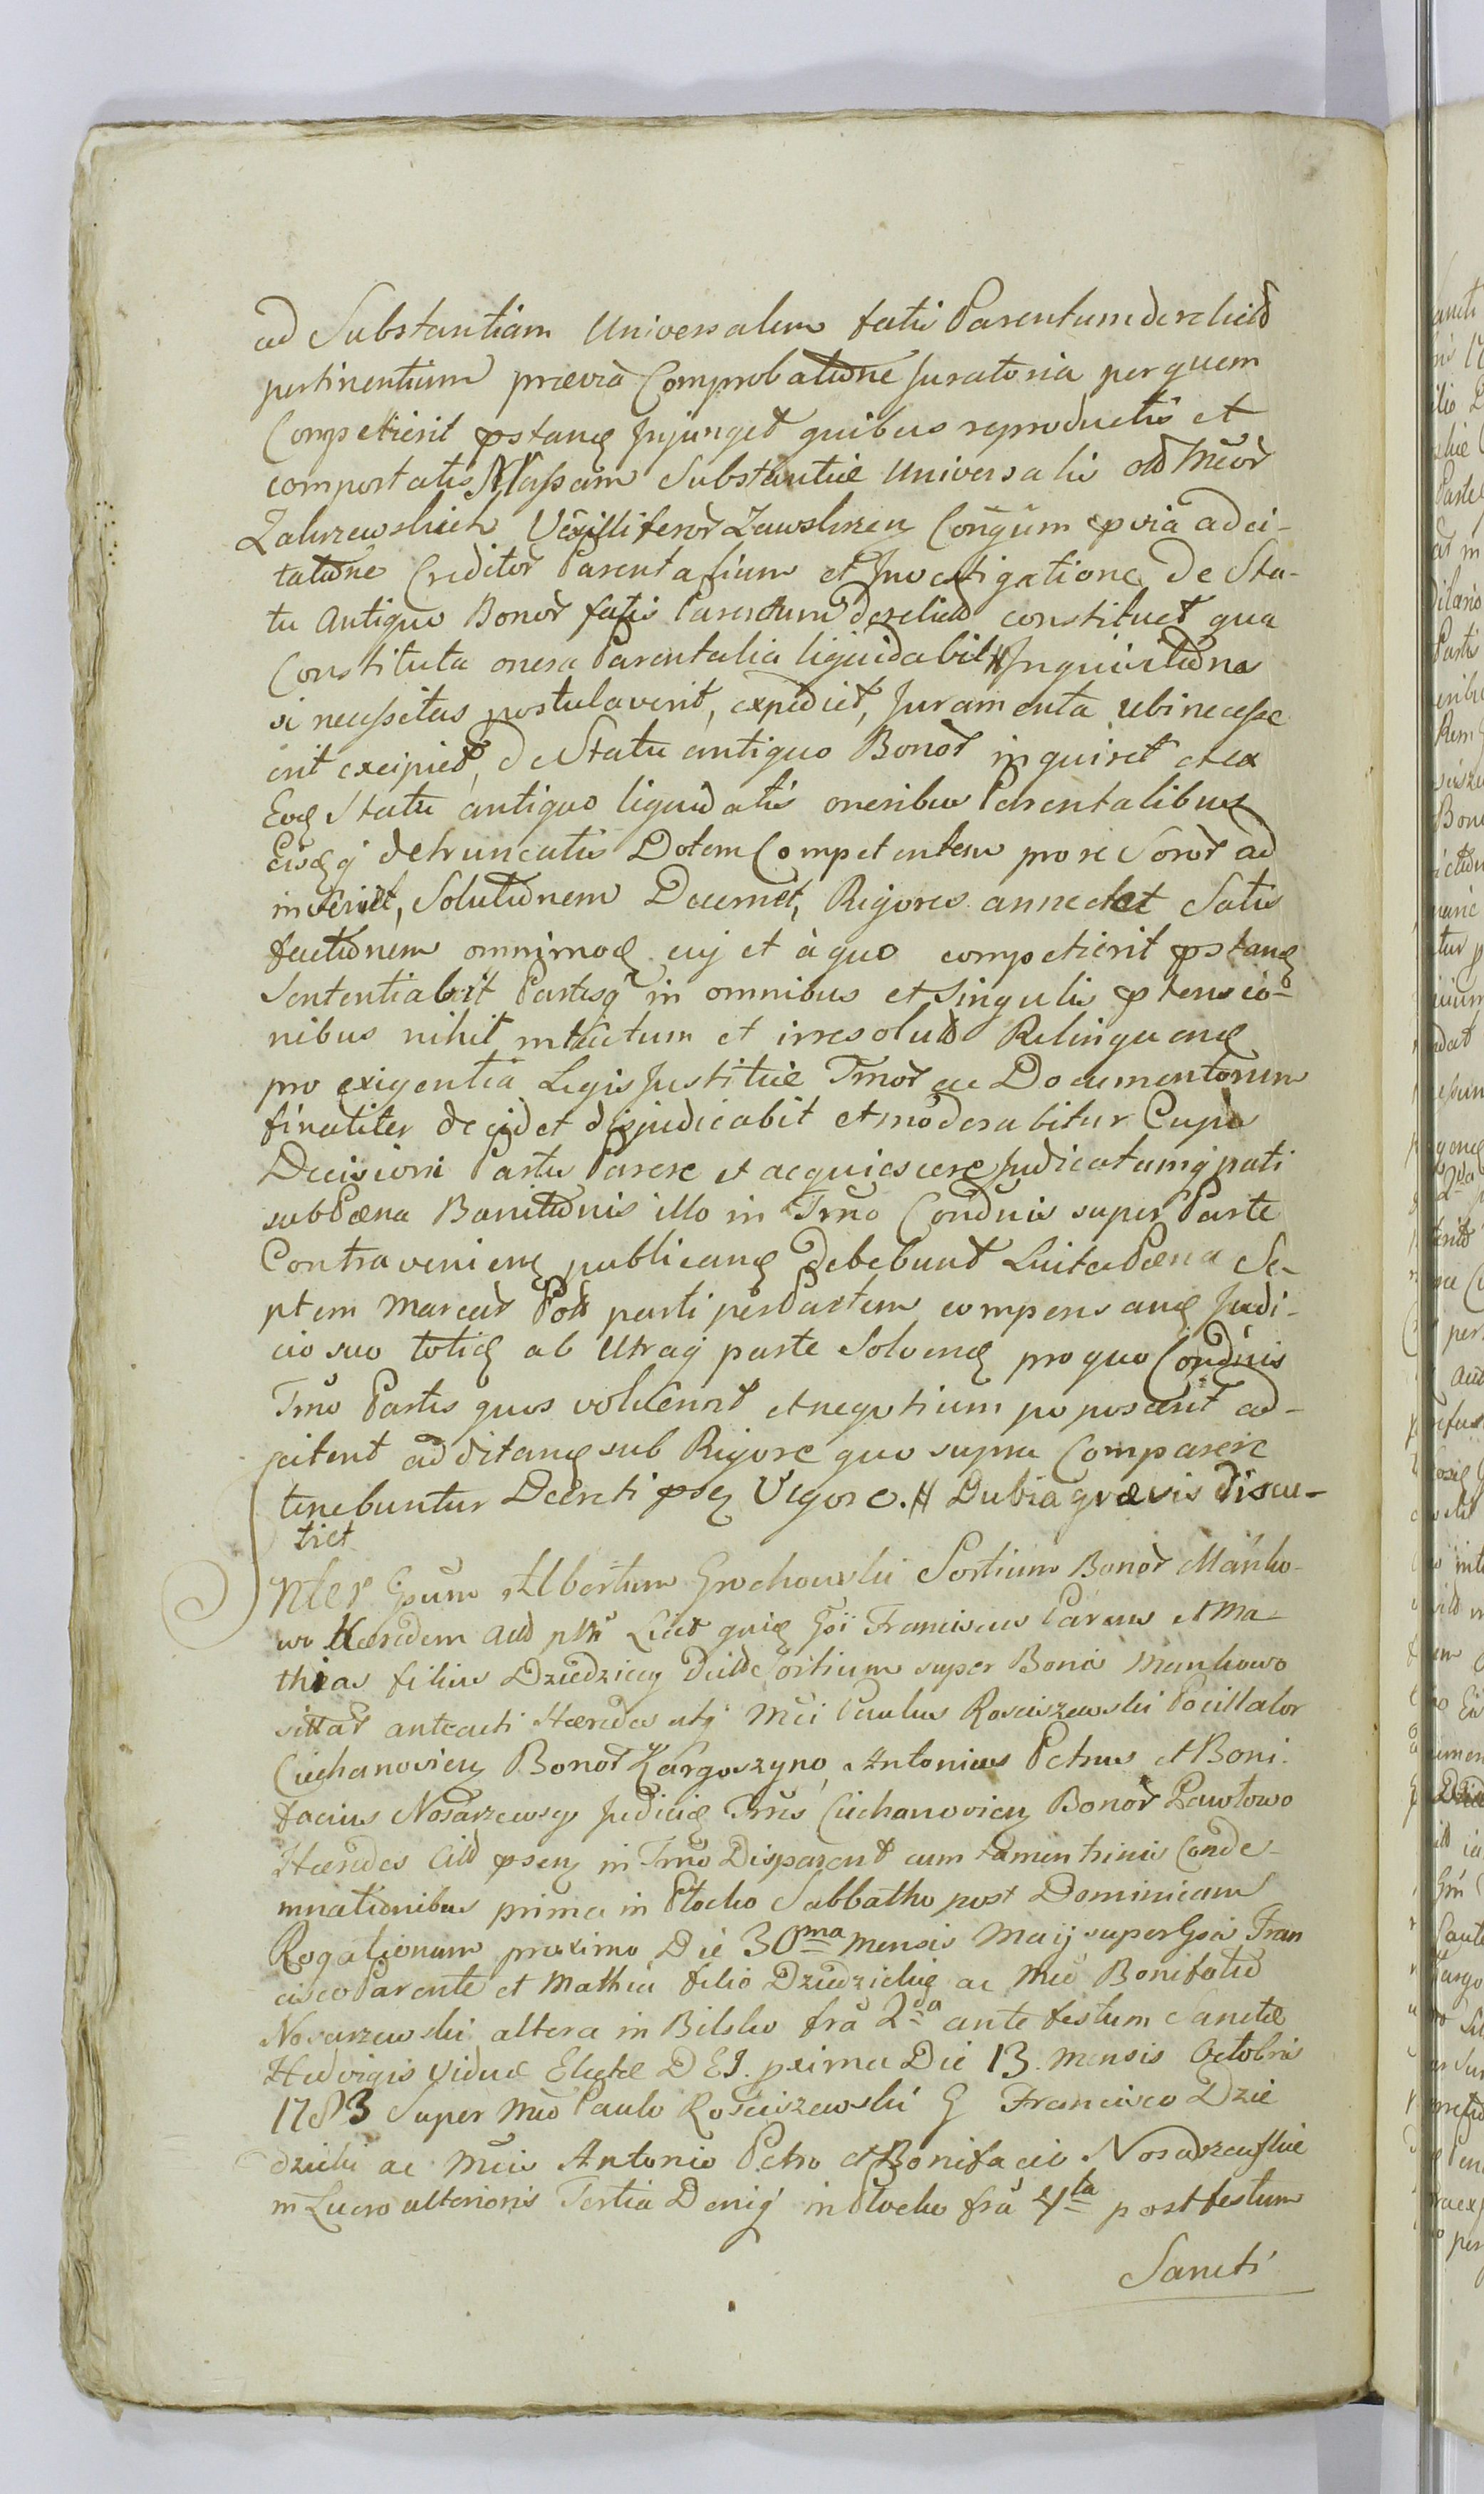 ad Substantiam Universalem fatis Parentum derelict
pertinentium prævia Comprobatione Juratoria per quem
Competierit pstand Injunget quibus reproductis et
comportatis Massam Substantiæ Universalis old Mcor
Zakrzewskich Vexilliferor Zawskrzen Congum pvia adci-
tatione Creditor Parentalium et Investigatione de Sta-
tu Antiquo Bonor fatis Parentum derelict constituet qua
Constituta onera Parentalia liquidabit # Inquisitiones
si necessitas postulaverit, expediet, Juramenta ubi necesse
erit excipiet, de Statu antiquo Bonor inquiret et ex
Eod Statu antiquo liquidatis oneribus Parentalibus
Eisdq detruncatis Dotem Competentem pro se Soror ad
inveniet, Solutionem Decernet, Rigores annectet Satis
factionem omnimod cuj et à quo competierit pstand
Sententiabit Partesq in omnibus et singulis ptensio-
nibus nihil intactum et irresolut Relinquend
pro exigentia Legis Justitiæ Tmor ac Documentorum
finaliter decidet disjudicabit et moderabitur Cujus
Decisioni Partes Parere et acquiescere Judicatumq pati
sub Pæna Banitionis illo in Trno Condnis super Parte
Contravenien publicand debebunt Luita Pæna Se-
ptem Marcar Poll parti per Partem compensand Judi-
cio suo totid ab utraq parte Solvend pro quo Condnis
Trno Partes quos voluerint et negotium poposcerit ad-
citent ad ditand sub Rigore quo supra Comparere
tenebuntur Decreti psen Vigore. # Dubia quævis discu-
tiet
Inter Gsum Albertum Grochowski Sortium Bonor Mańko-
wo Hæredem Act pltr Licet quid Gsi Franciscus Parens et Ma-
thias filius Dziedzicy dict Sortium super Bonis Mankowo
sittar anteacti Hæredes atq Mci Paulus Rosciszewski Pocillator
Ciechanovien Bonor Kargoszyno, Antonius Petrus et Boni
facius Nosarzewscy Judicid Trris Ciechanovien Bonor Pawłowo
Hæredes Citt psen in Trno Disparent cum tamen trinis Conde-
mnationibus prima in Płocko Sabbatho post Dominicam
Rogationum proximo Die 30ma mensis Maij super Gsis Fran
cisco Parente et Mathia filio Dziedzickie ac Mco Bonifatio
Nosarzewski altera in Bilsko fra 2da ante festum Sanctæ
Hedvigis Viduæ Electæ DEI. prima Die 13. mensis Octobris
1783 Super Mco Paulo Rosciszewski G Francisco Dzie
dzicki ac Mcis Antonio Petro et Bonifacio Nosarzewskie
in Lucro ulterioris Tertia Deniq in Płocko fra 4ta post festum
Sancti